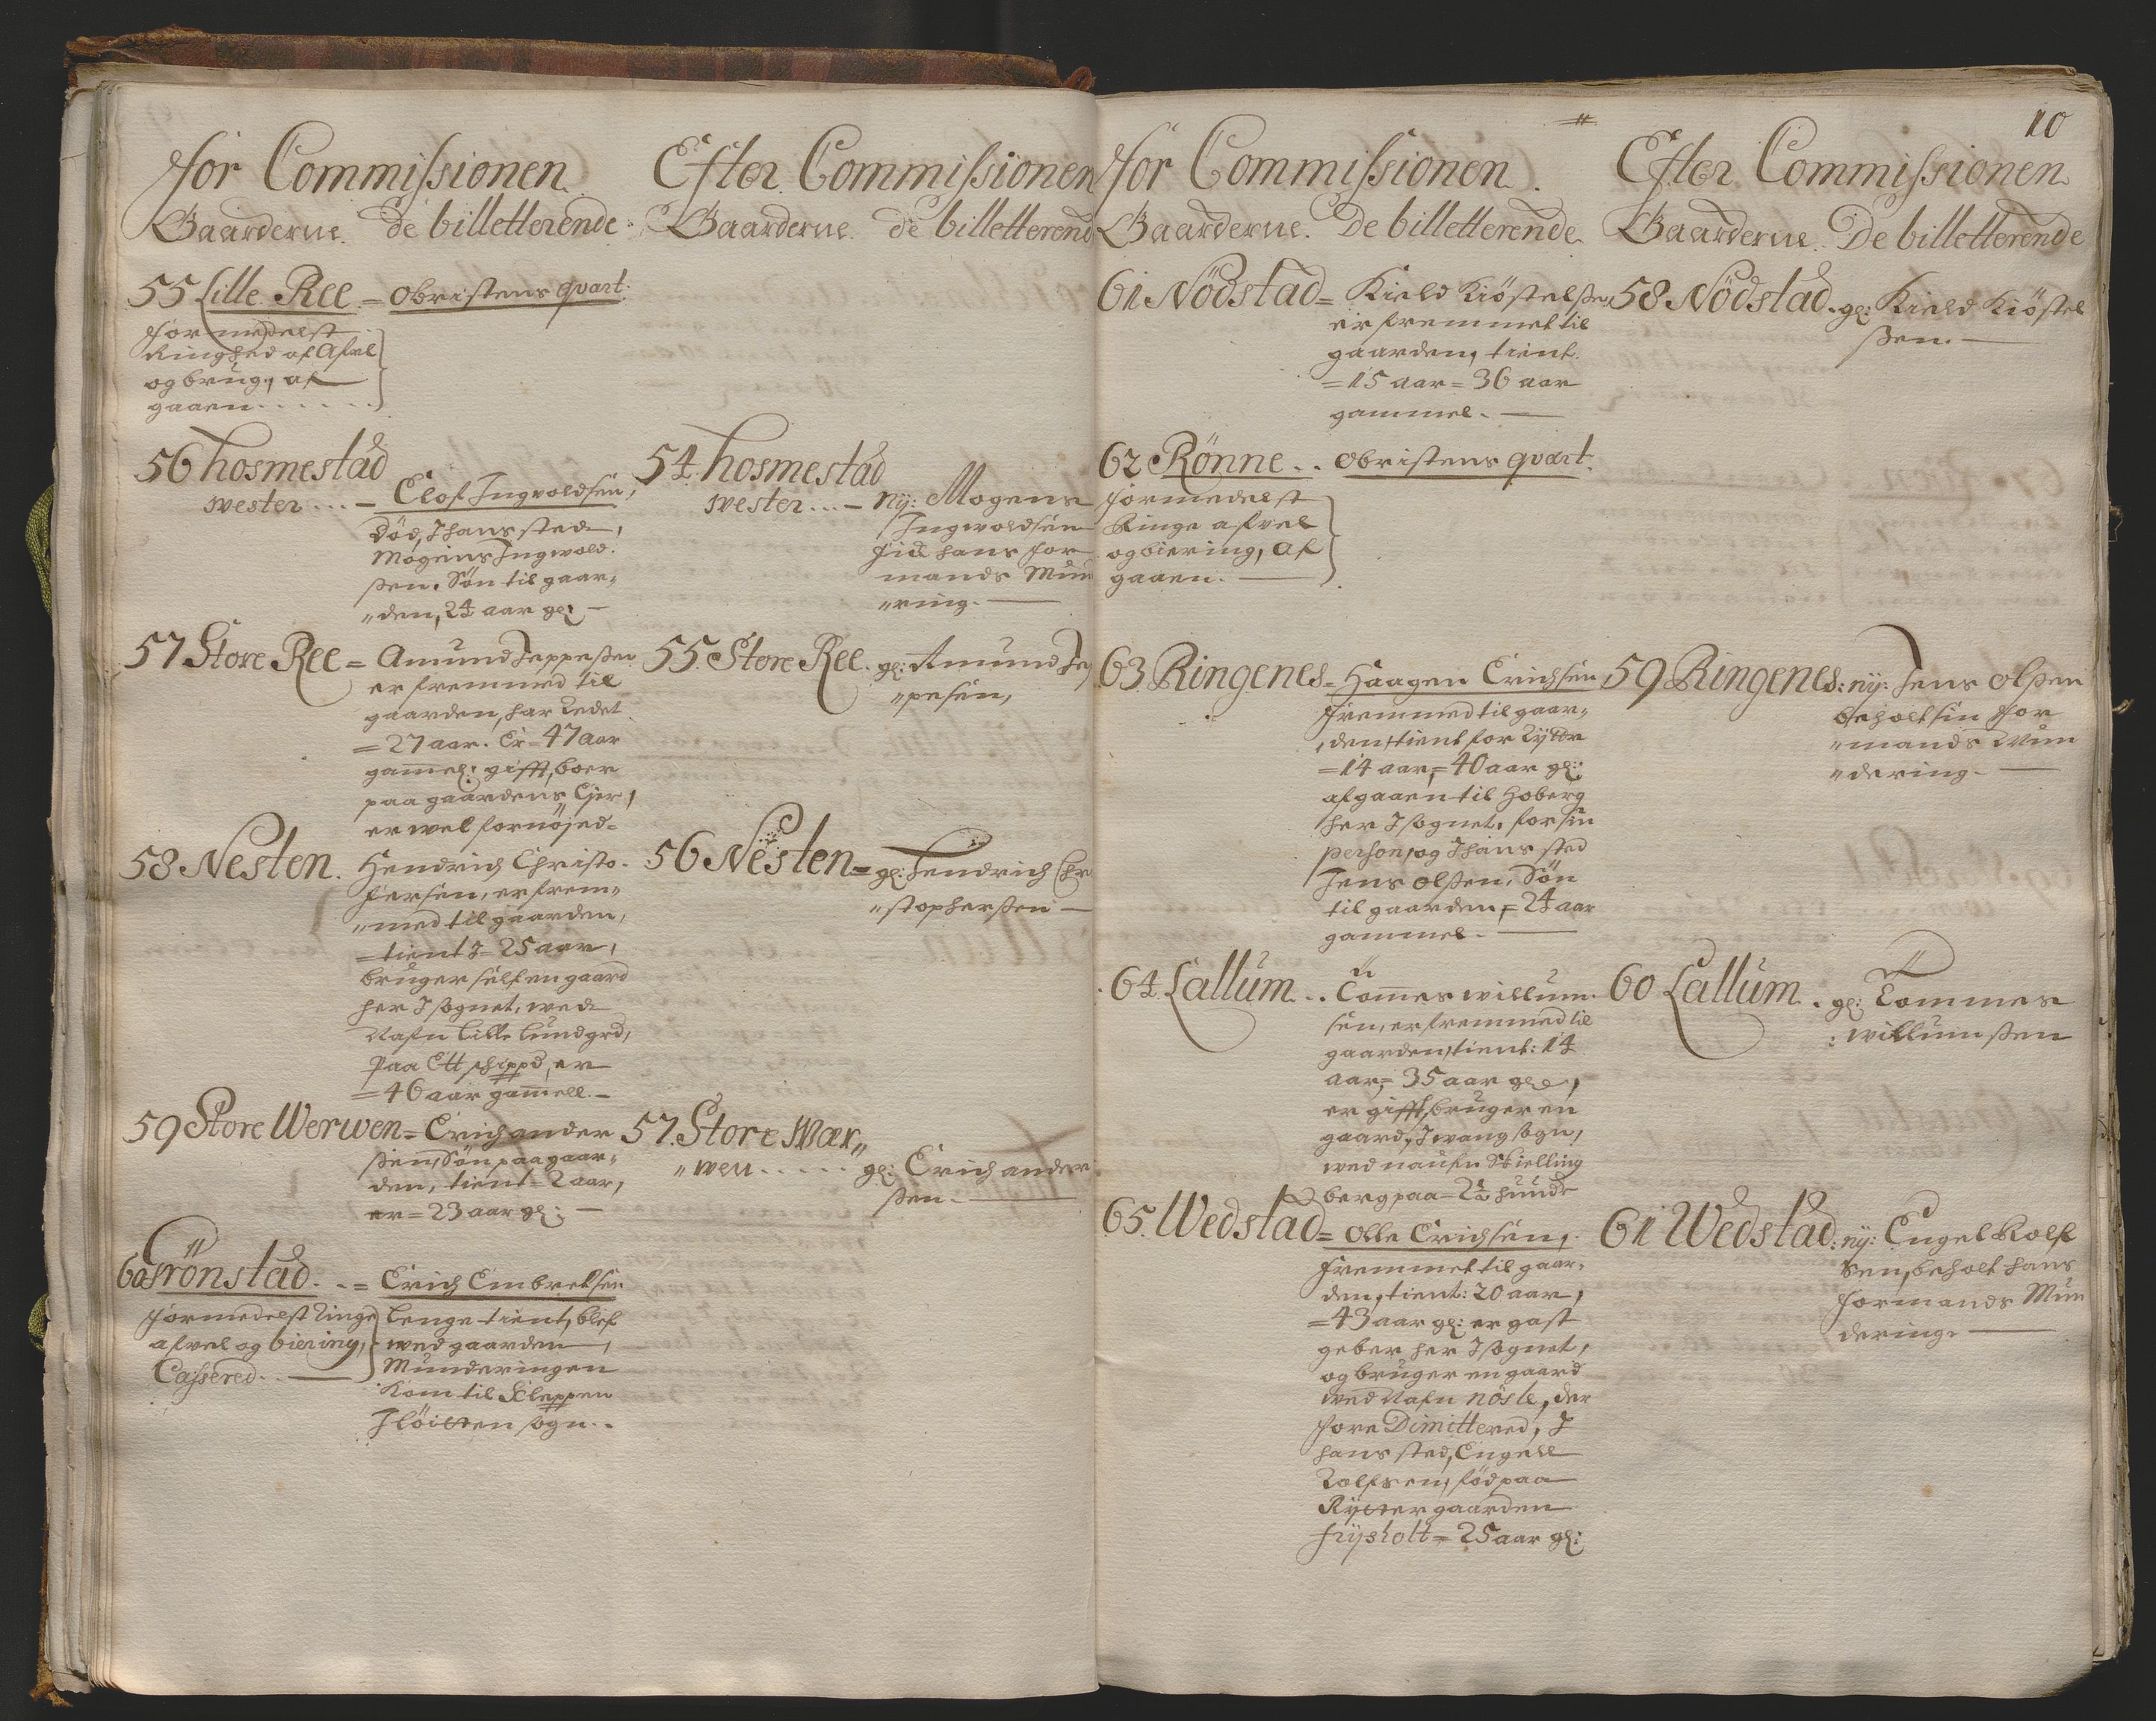 for Commissionen
Gaarderne. de billetterende
55 Lille Ree = Obristens quart:
formedelst
Ringhed af Afvel
og brug, af
gaaen . . . . . .
56 hosmestad
wester . . . – Elof Ingvoldsen,
død, I hans sted,
Mogens Ingwold-
ßen. Søn til gaar„
„den, 24 aar gl: –
57 Store Ree = Amund Jeppeßen
er fremmed til
gaarden, har Redet
= 27 aar. Er = 47 Aar
gamel: gifft, boer
paa gaardens Ejer,
er wel fornøjed-
58 Nesten. Hendrich Christo-
fersen, er frem„
„med til gaarden,
= tient I = 25 aar,
bruger self en gaard
her I sognet, wed
Nafn Lille Lundgrd,
paa Ett schippd, er
= 46 aar gamell. –
59 Store Werwen = Erich ander
ßen, Søn paa gaar„
den, tient = 2 aar,
er = 23 aar gl: –
60 Frönstad. . = Erich Embretsen
formedelst Ringe
afvel og biering,
Cassered. . —
lenge tient, blef
wed gaarden,
Munderingen
kom til Kleppen
I Löiten sogn. .
Efter Commissionen
Gaarderne de billetterend
54. hosmestad
wester . . . – ny: Mogens
Ingwoldsen
fick hans for
mands Mun
„ring. —
55. Store Ree. gl: Amund Jep
„pesen,
56 Nesten = gl: Hendrich Chri
„stopherßen —
57. Store Wær„
„wen . . . . . gl: Erich ander
ßen. —
for Commissionen.
Gaarderne. De billetterende
61 Nödstad = Kield Kiöstelßen
er fremmet til
gaarden, tient
= 15 aar = 36 aar
gammel. —
62 Rönne . . Obristens quart.
formedelst
Ringe afvel
og biering, Af
gaaen. —
63 Ringenes = Haagen Erichsen
fremmed til gaar„
„den, tient for Rytter
= 14 aar, = 40 aar gl:
afgaaen til Hoberg
her I sognet, for sin
person, og I hans sted
Jens Olßen, Søn
til gaarden, = 24 aar
gammel. —
64. Lallum . . Tomes willum
sen, er fremmed til
gaarden, tient: 14
aar, = 35 aar gl:,
er gifft, bruger en
gaard, I wang sogn,
wed naufn Skielling
berg paa = 2½ hunde
65. Wedstad = Olle Erichsen,
fremmet til gaar-
den, tient: 20 aar,
= 43 aar gl: er gast
geber her I sognet,
og bruger en gaard
wed Nafn nösle, der
fore Dimittered, I
hans sted, Engell
Rolfsen, föd paa
Rytter gaarden
frysholt = 25 aar gl:
10
Efter Commissionen
Gaarderne. De billetterende
58 Nödstad. gl: Kield Kiöstel
ßen. —
59 Ringenes: ny: Jens Olßen
beholt sin for
„mands Mun
„dering. —
60 Lallum . gl: Tommes
: willumßen
61 Wedstad: ny: Engel Rolf
sen, beholt hans
formands Mun
dering. —